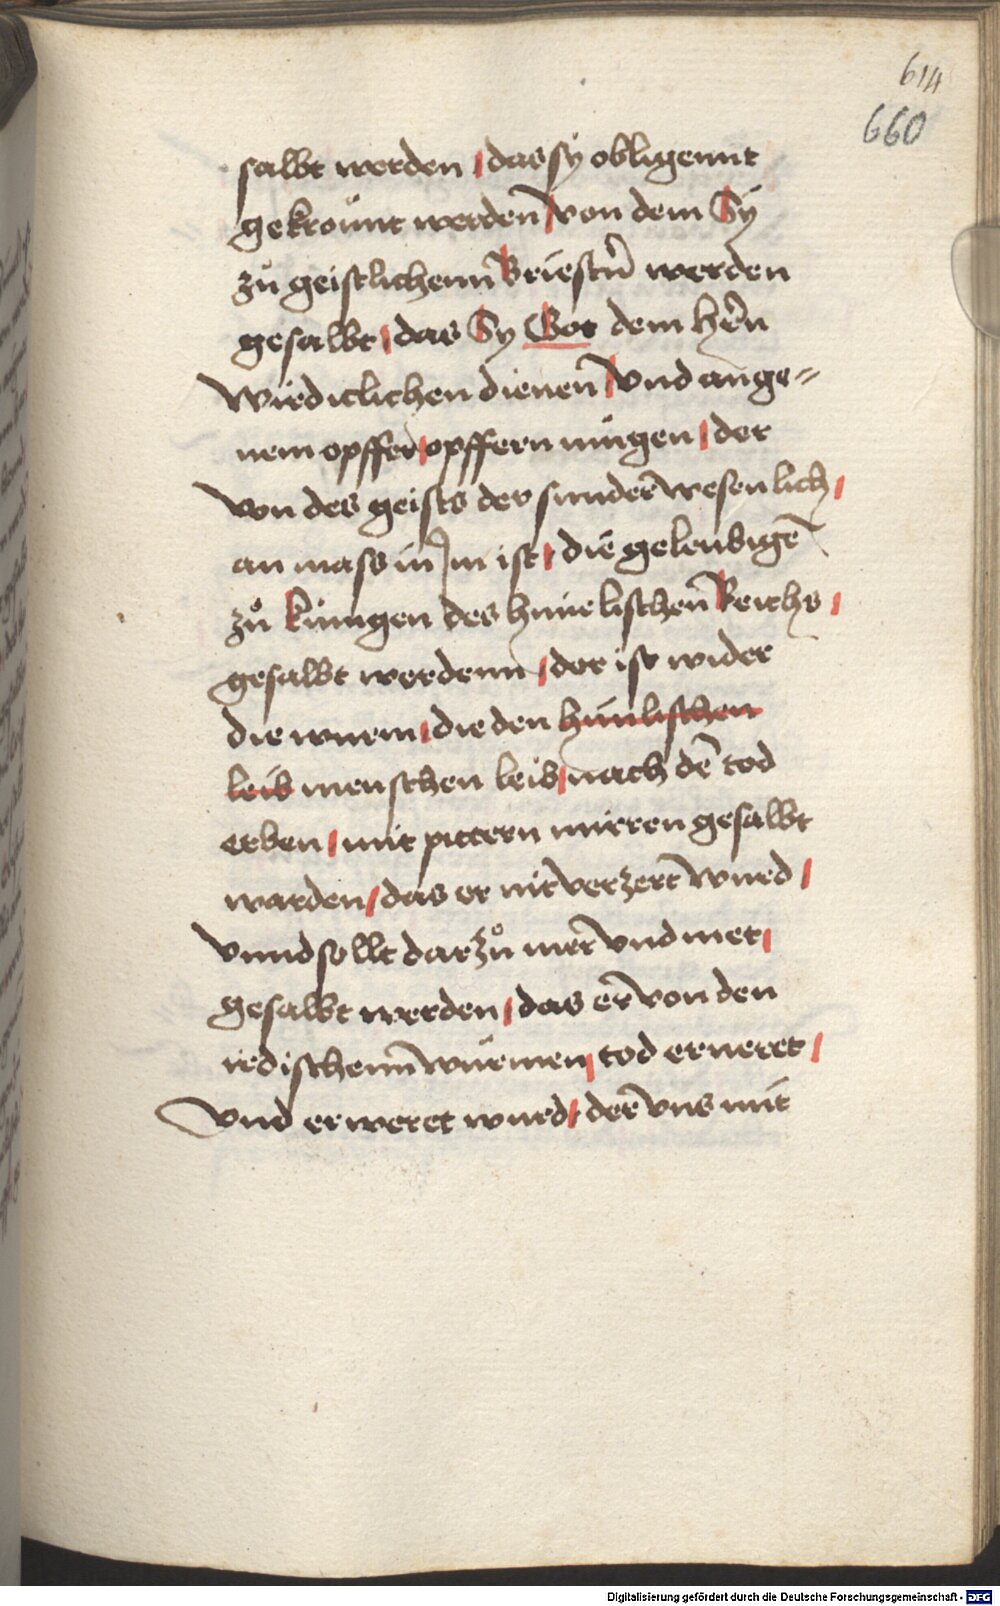 614
660
salbt werden / das sÿ obligennt
gekrönnt werdenn̄ / von dem Sÿ
zů geistlichenn̄ Briestn̄ werden
gesalbt / das Sy Got dem her̄n
wirdiclichen dienen̄ / vnd ange=
nem opffer / opffern mügen / der
von des geists der sunder̄ wesenlich /
an mass in Jm ist / die geleubigē
zů künigen des himelischen̄ Reichs /
gesalbt werdenn / der ist wider
die wurm / die den himlischen
leib menschen leib / nach dē tod
erben / mit pittern mirren gesalbt
warden / das er nit verzert wurd /
vnnd sollt darzů mer̄ vnd met /
gesalbt werden / das er̄ von den
irdischenn̄ würmen / tod erneret /
vnd erweret wurd / der̄ vns mit
Digitalisierung gefördert durch die Deutsche Forschungsgemeinschaft - DFG